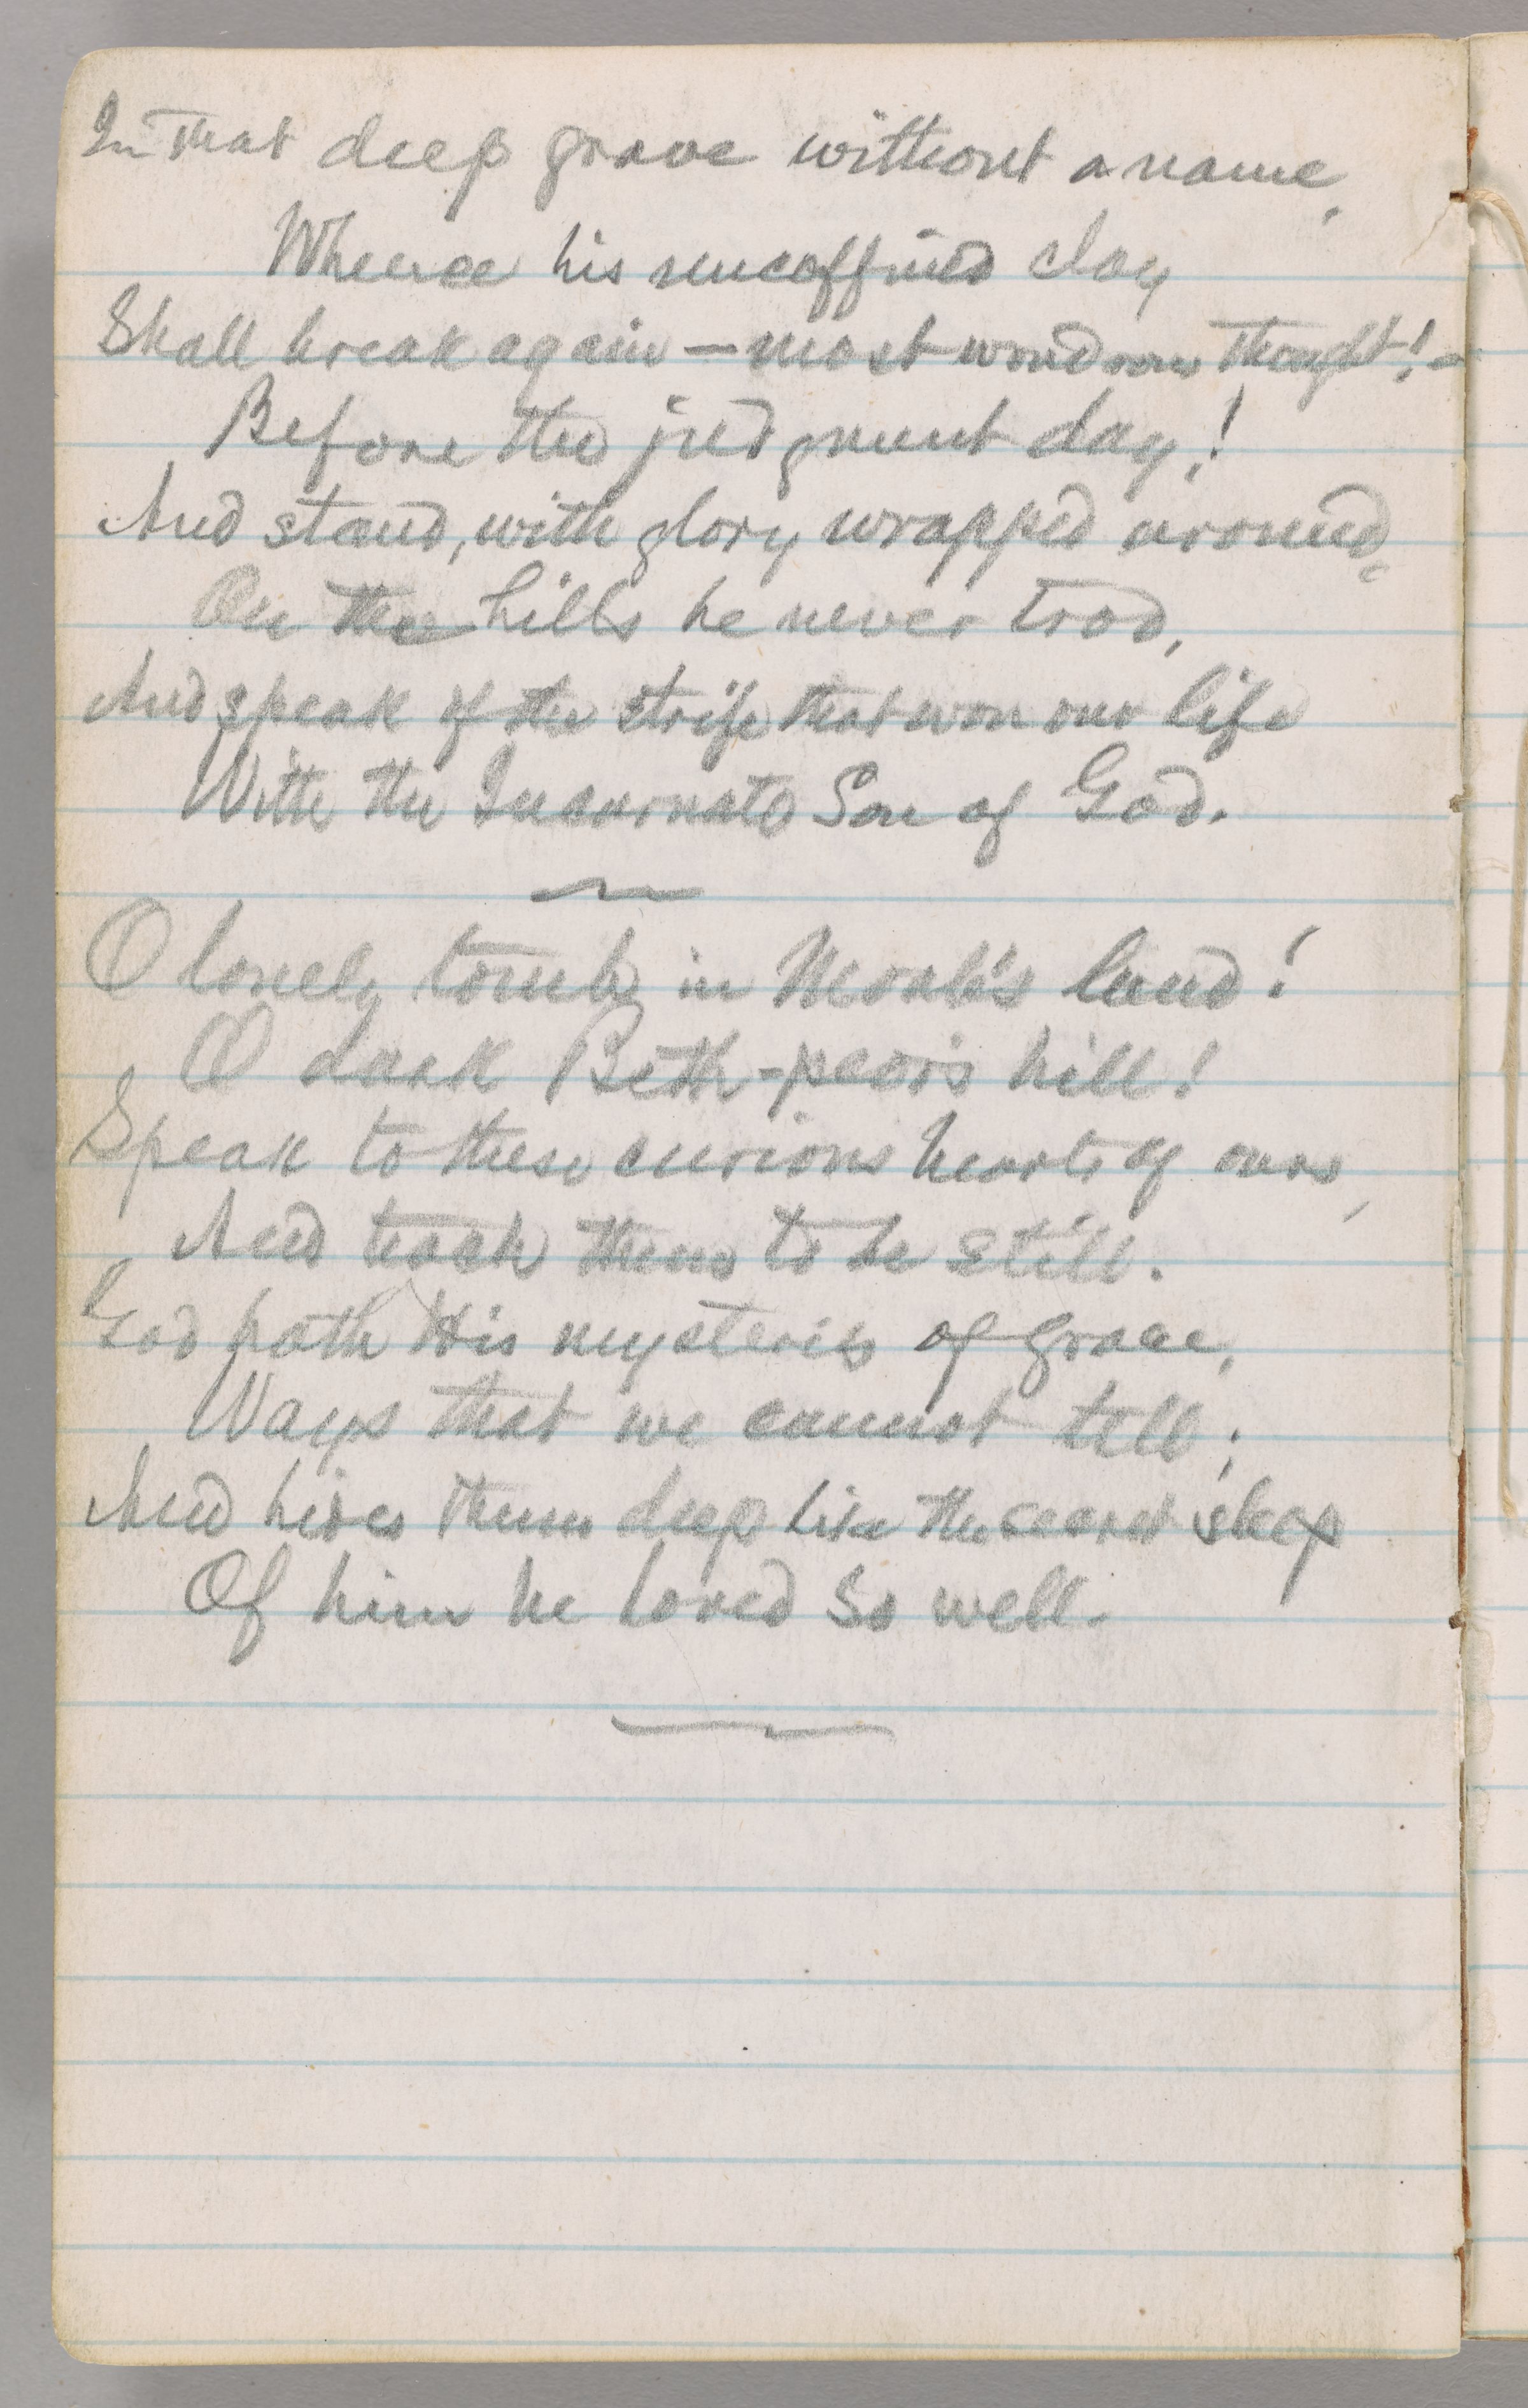 In that deep grave without a name,
Whence his uncoffined clay
Shall break again — most wondrous thought! —
Before the judgment day!
And stand, with glory wrapped around,
On the hills he never trod,
And speak of the strife that won our life
With the Incarnate Son of God.
O lonely tomb in Moab's land!
O dark Beth-peor's hill!
Speak to these curious hearts of ours,
And teach them to be still.
God hath His mysteries of grace,
Ways that we cannot tell;
And hides them deep like the secret sleep
Of him he loved so well.